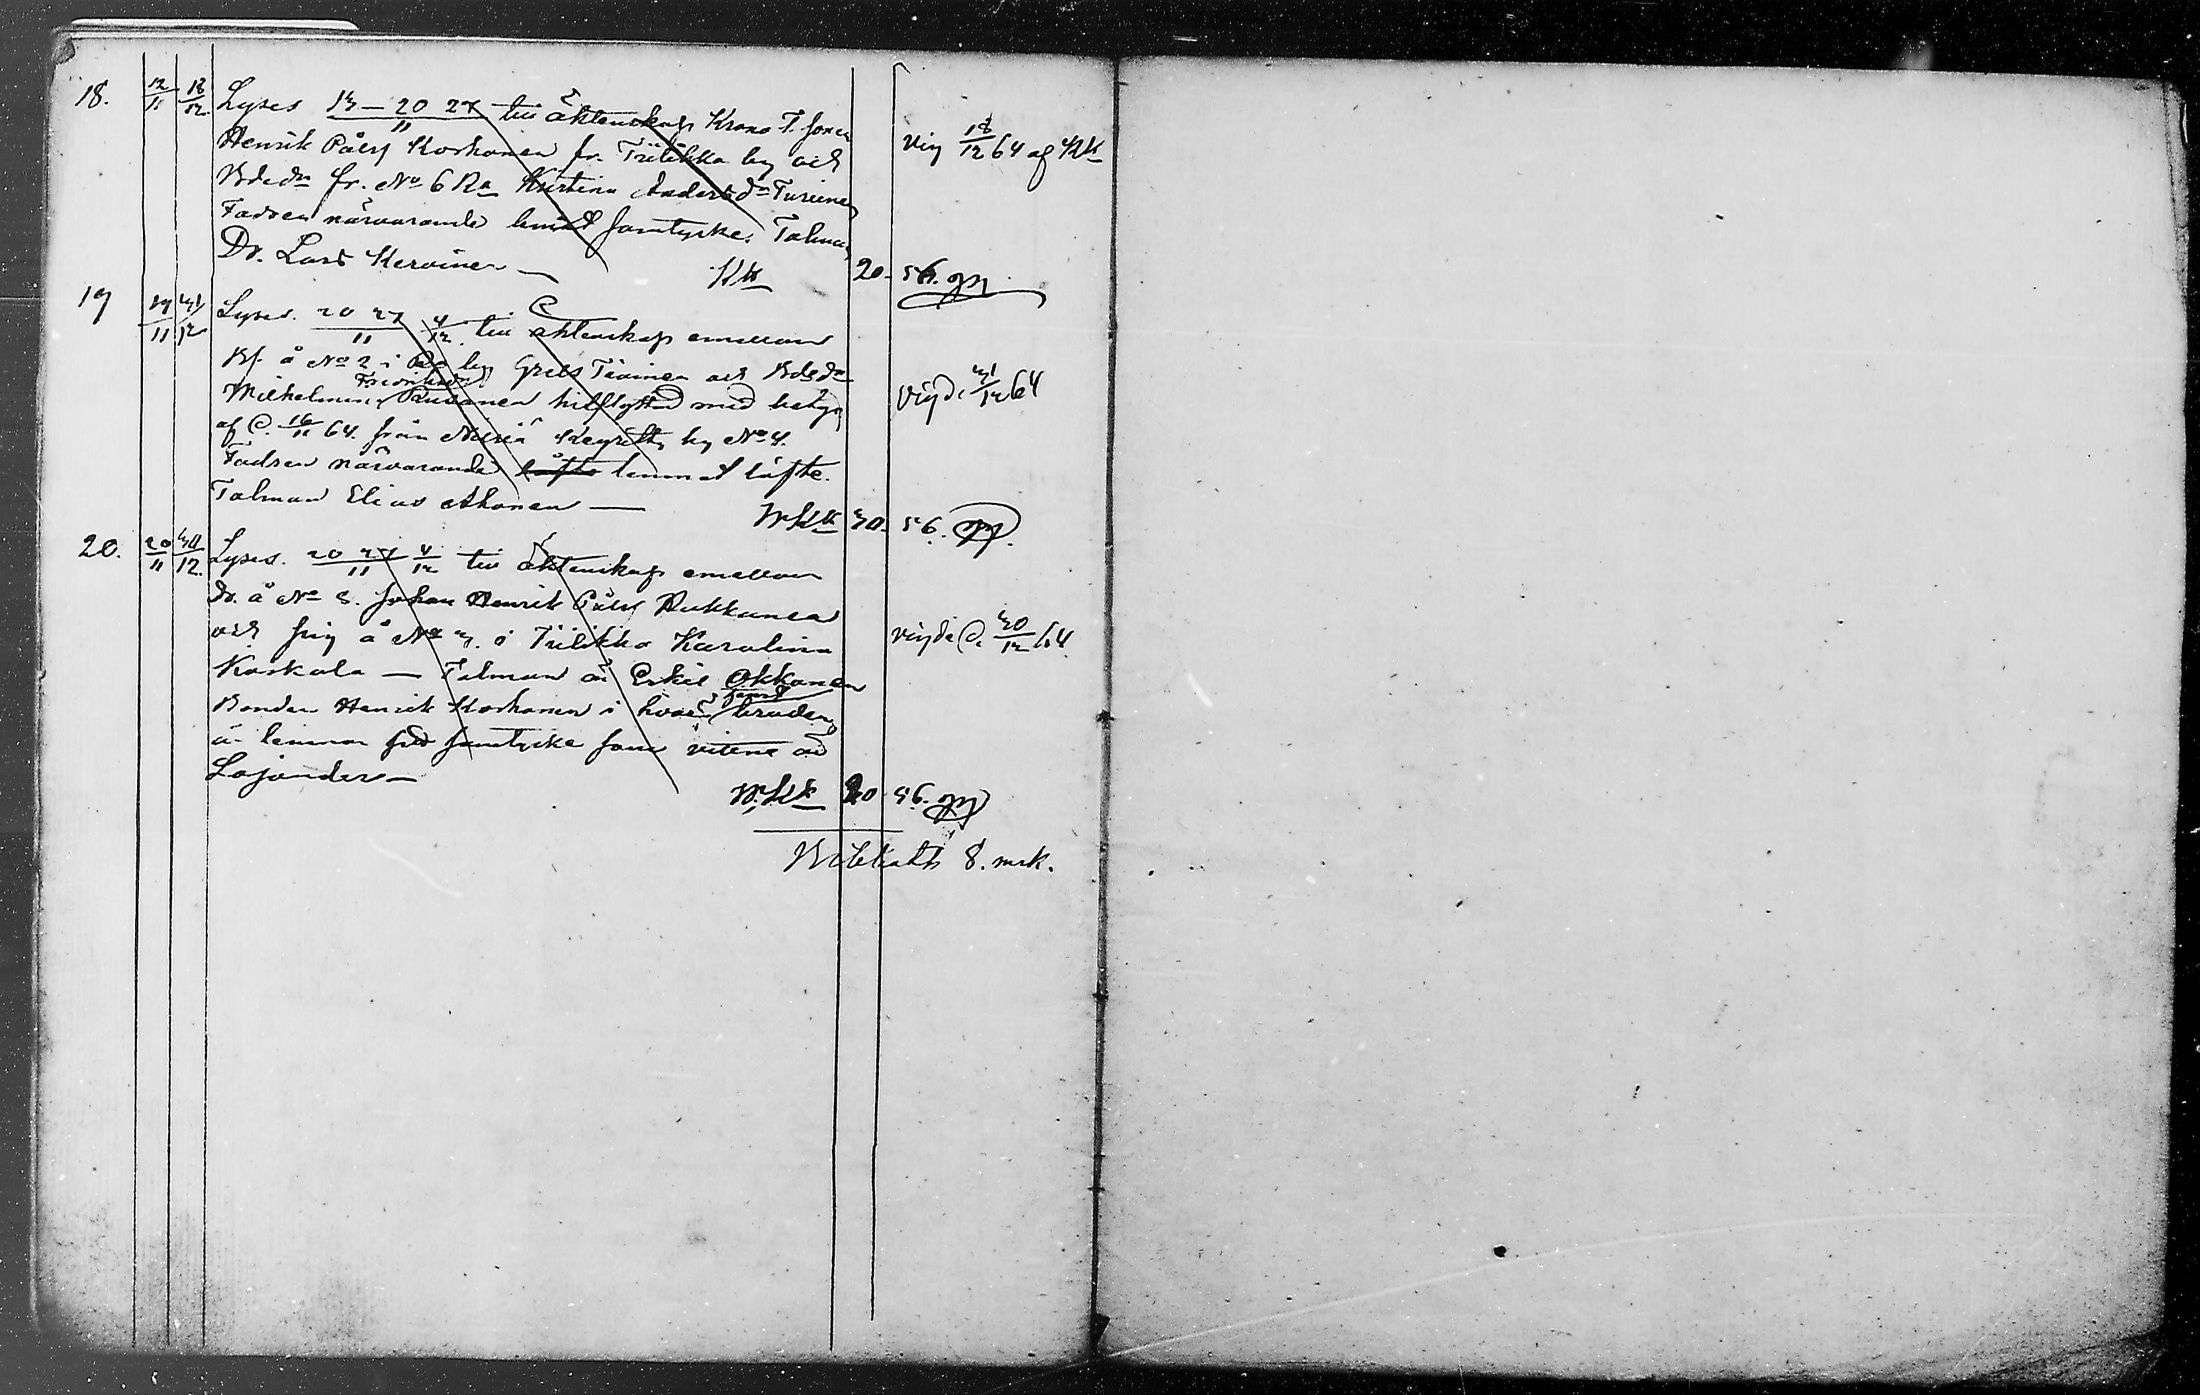 18. 12/11 18/12 Lyses 13 – 20 27/11 till äktenskap Krono T. sonen
Henrik Pålss Korhonen fr. Tiilikka by och
Bdedr fr. No 6 Ra Kristina Andersdr Turunen
Fadren närvarande lemnat samtycke. Talman
Dr. Lars Kervinen — KK 20 - 56.
vig 18/12 64 af KK
19 19/11 31/12 Lyses. 20 27/11 4/12 till äktenskap emellan
Bf. å No 2 i Ra by Grels Tiainen och Bdedr
Fredriksdr
Wilhelmina Rusanen hitflyttad med betyg
af d. 16/11 64. från Nilsiä by No 4.
Fadren närvarande löfte lemnat löfte.
Talman Elias Ahonen — W. KK 30 - 56.
vigde 31/12 64
20. 20/11 30/12 Lyses. 20 27/11 4/12 till äktenskap emellan
Dr. å No 8. Johan Henrik Pålss Hukkanen
och pig å No 3. i Tiilikka Karolina
Koskela — Talman är Eskil Okkonen
Bonden Henrik Korhonen i hvars bruden
är lemnar sitt samtycke som vittne är
Lojander — W. KK 20 56.
vigde d. 30/12 64
8. mrk.